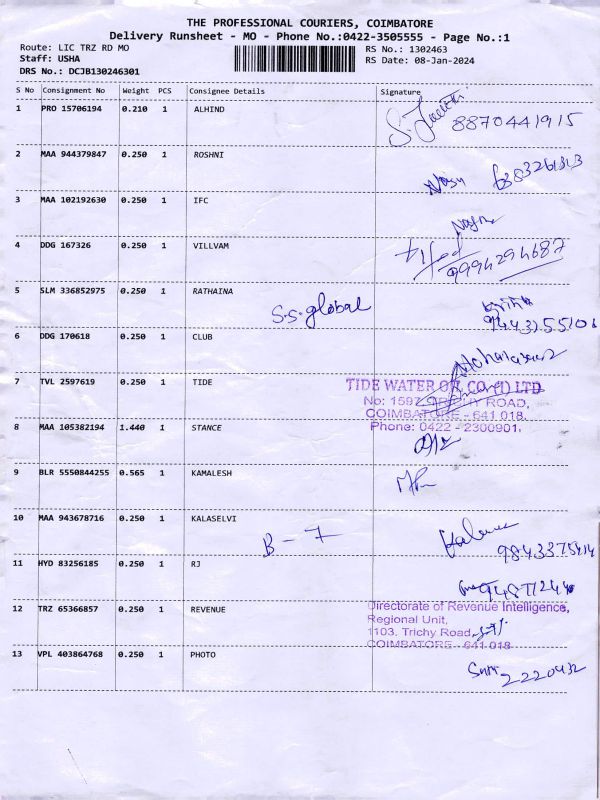 THE PROFESSIONAL COURIERS, COIMBATORE
Delivery Runsheet - MO - Phone No.:0422-3505555 - Page No.:1
Route: LIC TRZ RD MO
RS No.: 1302463
Staff: USHA
RS Date: 08-Jan-2024
DRS No.: DCJB130246301
S No Consignment No Weight PCS Consignee Details Signature
1 PRO 15706194 0.210 1 ALHIND
8870441915
2 MAA 944379847 0.250 1 ROSHNI
3 MAA 102192630 0.250 1 IFC
4 DDG 167326 0.250 1 VILLVAM
9994294687
5 SLM 336852975 0.250 1 RATHAINA
S.S. global
6 DDG 170618 0.250 1 CLUB
7 TVL 2597619 0.250 1 TIDE
TIDE WATER OIL CO. (I) LTD
No: 1597, TRICHY ROAD,
COIMBATORE - 641 018.
8 MAA 105382194 1.440 1 STANCE
Phone: 0422 - 2300901,
9 BLR 5550844255 0.565 1 KAMALESH
10 MAA 943678716 0.250 1 KALASELVI
B - 7
11 HYD 83256185 0.250 1 RJ
12 TRZ 65366857 0.250 1 REVENUE
Directorate of Revenue Intelligence,
Regional Unit,
1103, Trichy Road,
COIMBATORE - 641 018
13 VPL 403864768 0.250 1 PHOTO
2220432